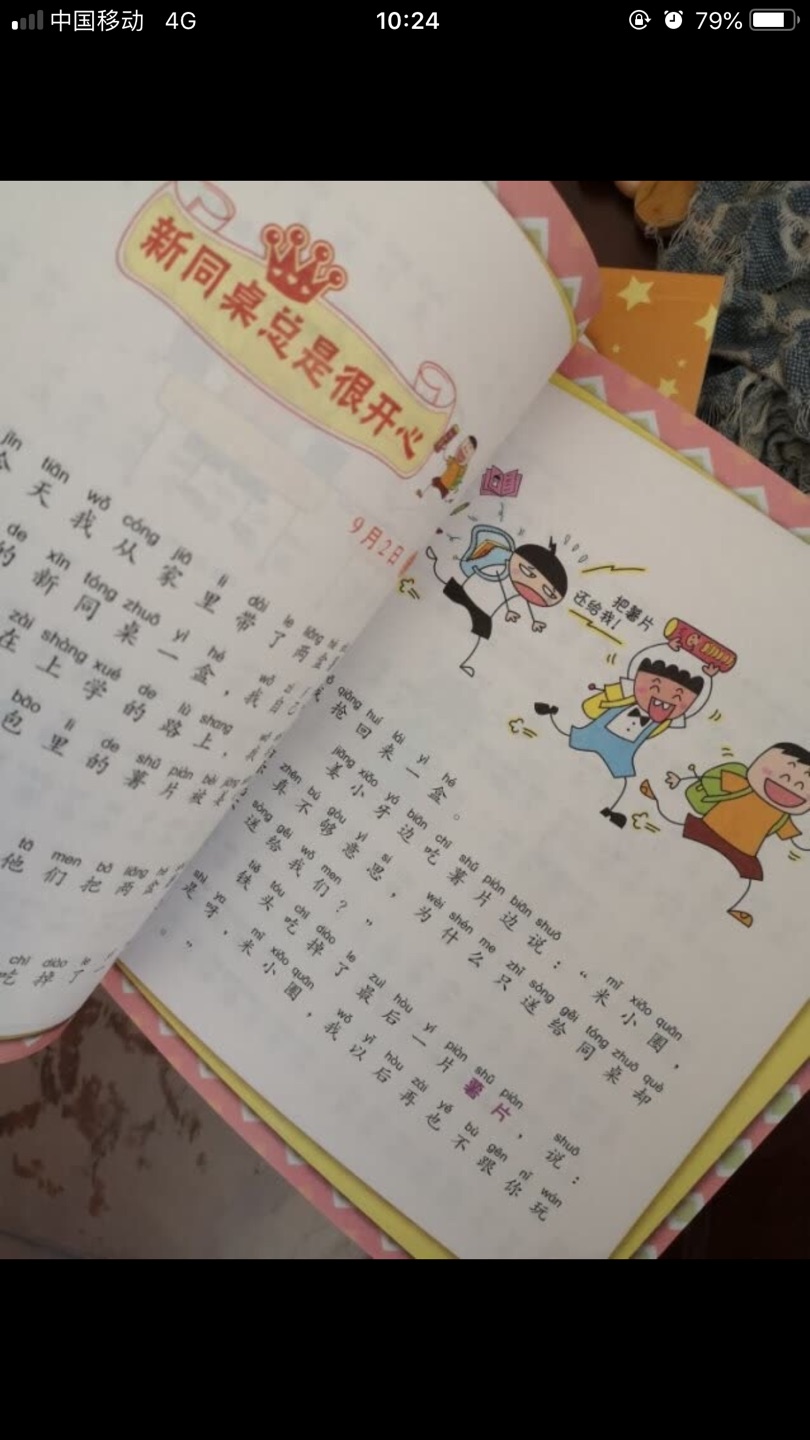 中国移动 4G 10:24 79%
新同桌总是很开心
9月2日
jīn tiān wǒ cóng jiā lǐ dài le liǎng hé
今天我从家里带了两盒
de xīn tóng zhuō yì hé wǒ zì
的新同桌一盒，我自己
zài shàng xué de lù shang
在上学的路上，
bāo lǐ de shǔ piàn bèi
包里的薯片被
tā men bǎ liǎng
他们把两
chī diào le
吃掉了
把薯片
还给我！
qiǎng huí lái yì hé
抢回来一盒。
jiāng xiǎo yá biān chī shǔ piàn biān shuō mǐ xiǎo quān
姜小牙边吃薯片边说：“米小圈，
zhēn bú gòu yì si wèi shén me zhǐ sòng gěi tóng zhuō què
真不够意思，为什么只送给同桌却
sòng gěi wǒ men
送给我们？”
tiě tóu chī diào le zuì hòu yí piàn shǔ piàn shuō
铁头吃掉了最后一片薯片，说：
shì ya mǐ xiǎo quān wǒ yǐ hòu zài yě bù gēn nǐ wán
是呀，米小圈，我以后再也不跟你玩
。”